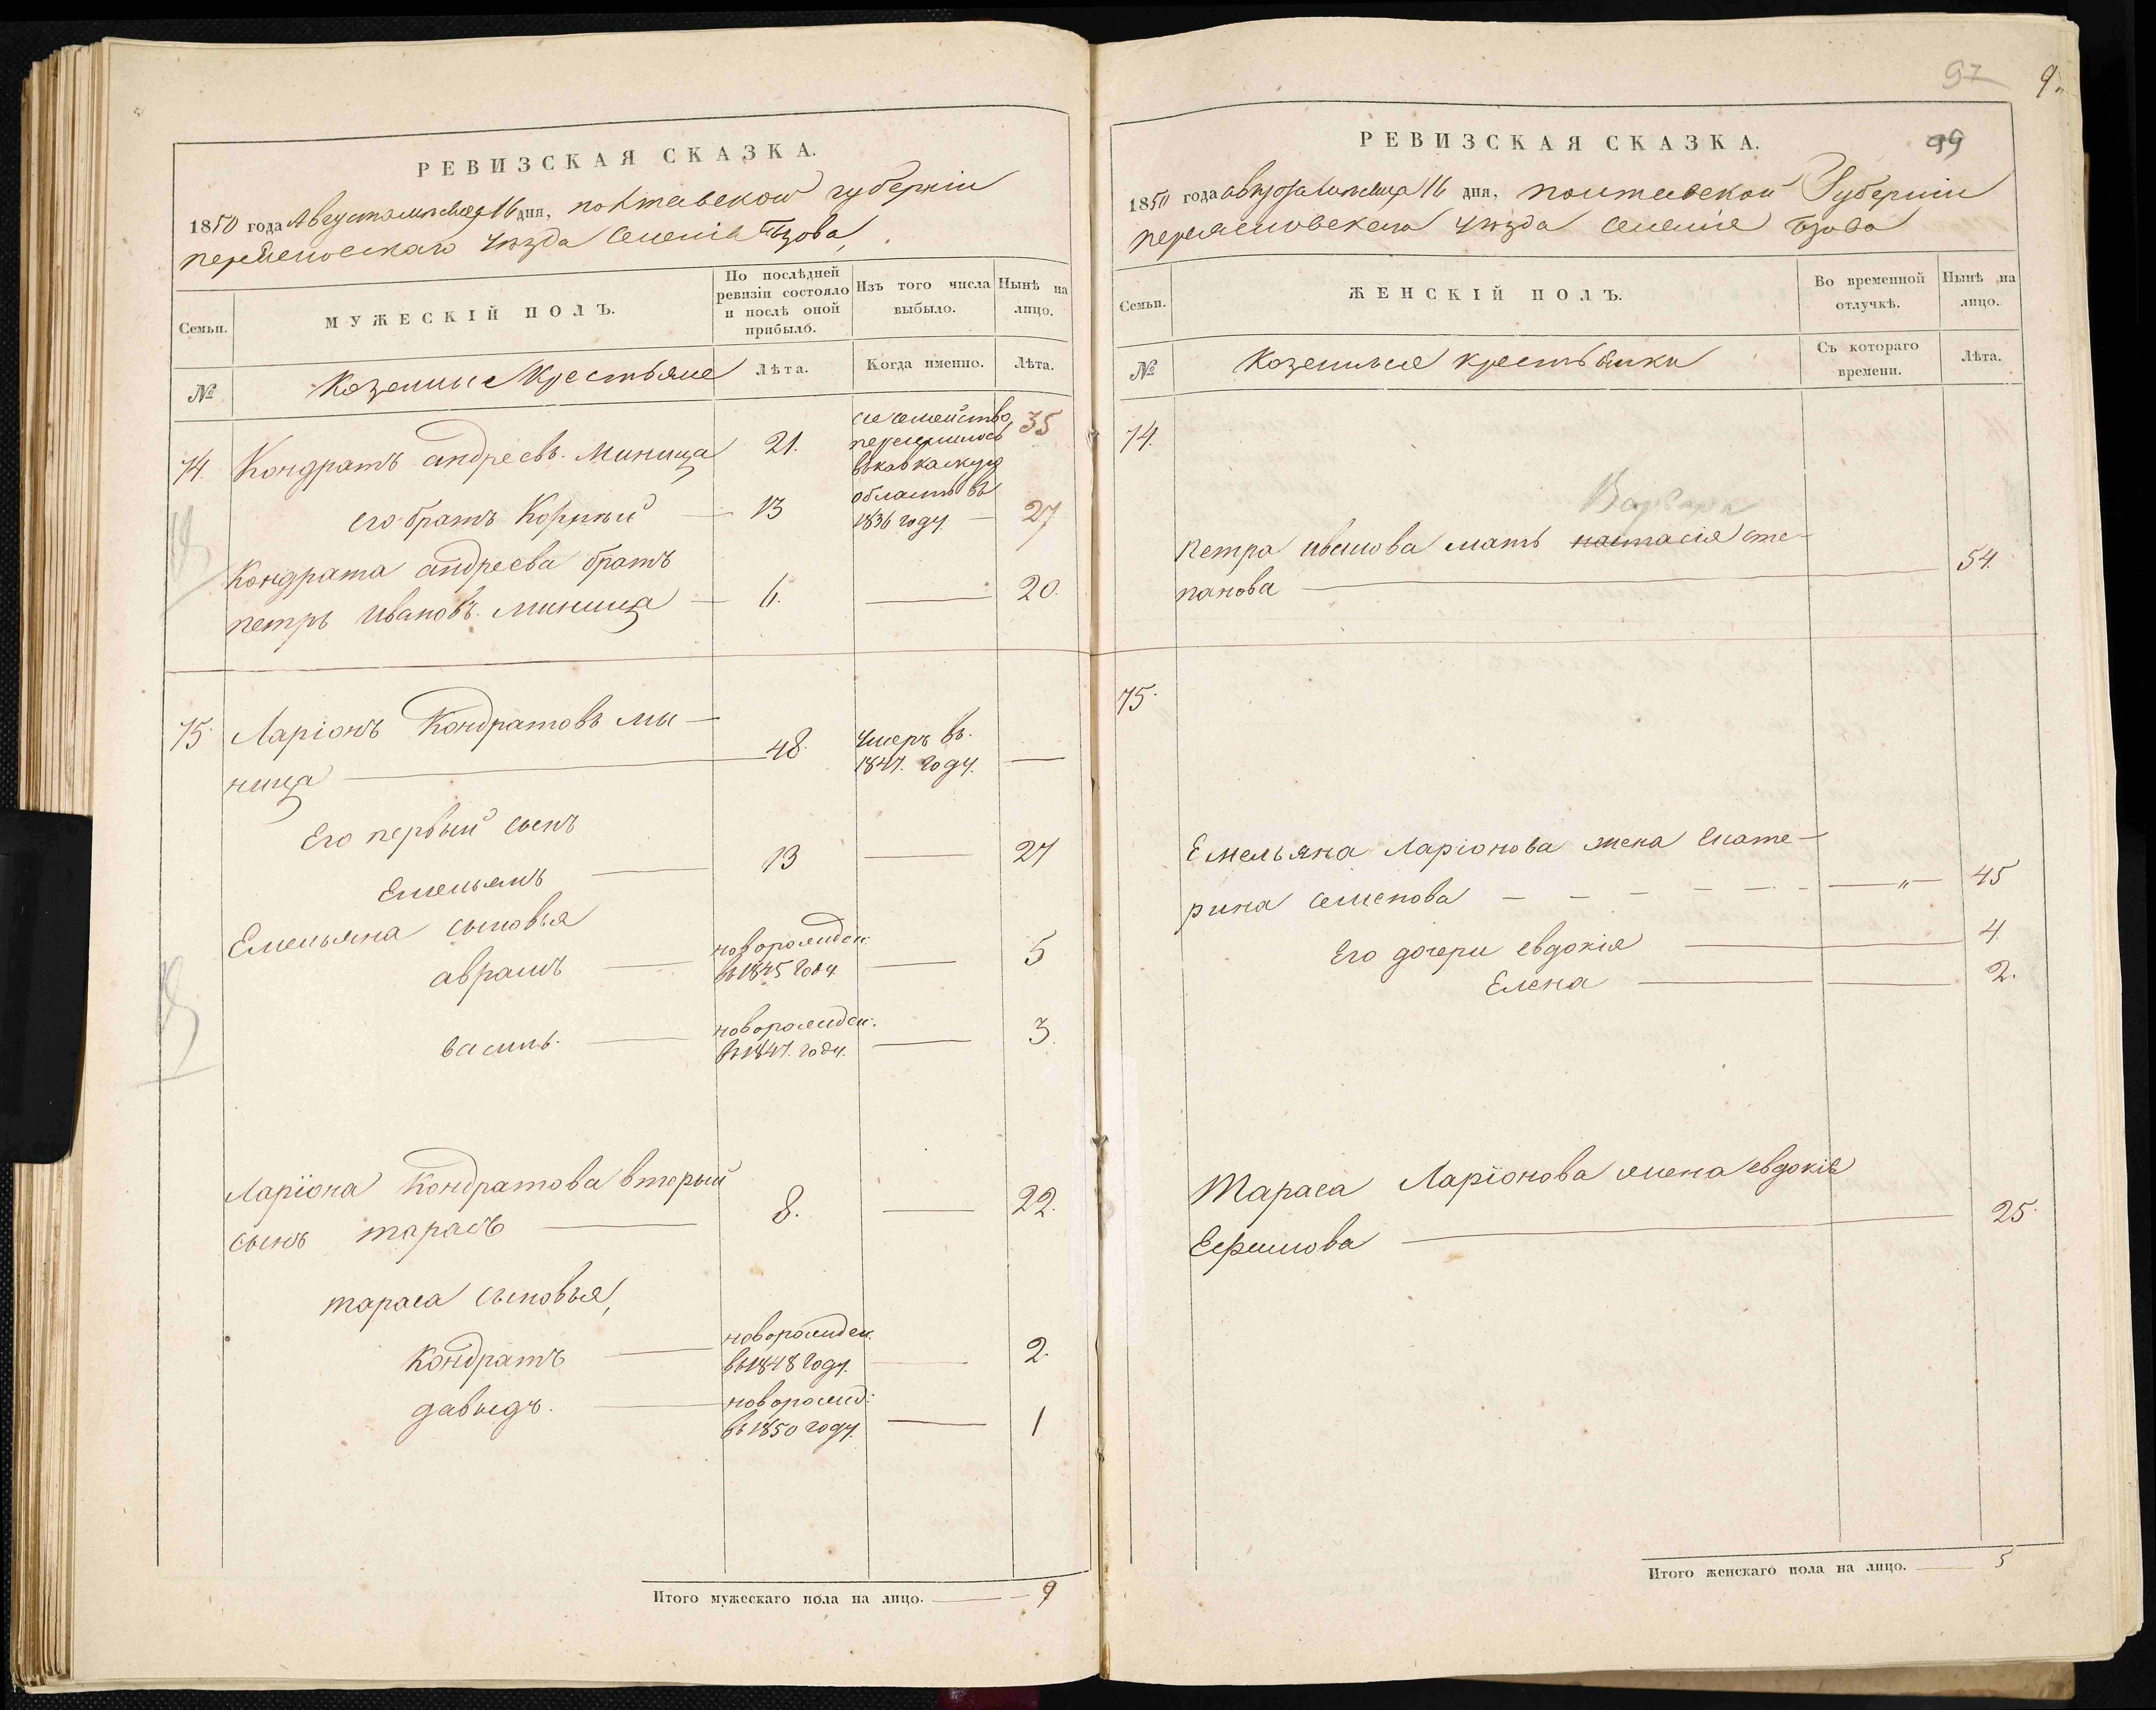 РЕВИЗСКАЯ СКАЗКА.
1850 года Августа месяца 16 дня, полтавской губернiи
переяславскаго уезда Селенiя Бзова
Семьи.
МУЖЕСКIЙ ПОЛЪ.
По послѣдней ревизiи состояло и послѣ оной прибыло.
Изъ того числа выбыло.
Нынѣ на лицо.
№
Казенные Крестьяне
Лѣта.
Когда именно.
Лѣта.
74. Кондратъ андреевъ Миница 21. сие семейство переселилось въ кавкаскую область въ 1836 году 35
его братъ Корнiй — 13 — 27
Кондрата андреева братъ
петръ Ивановъ Миница — 6. — 20.
75. Ларiонъ Кондратовъ ми-
ница — 48. умеръ въ 1847. году. —
Его первый сынъ
Емельянъ — 13 — 27
Емельяна сыновья
аврамъ — новорожден: въ 1845 году — 5
василь. — новорожден: въ 1847. году. — 3.
Ларiона Кондратова вторый
сынъ тарасъ — 8. — 22.
тараса сыновья
Кондратъ — новорожден. въ 1848 году. — 2.
давыдъ. — новорожд: въ 1850 году. — 1
Итого мужескаго пола на лицо. — 9
97
99
9
РЕВИЗСКАЯ СКАЗКА.
1850 года августа месяца 16 дня, полтавской Губернiи
переяславскаго уезда селенiя Бзова
Семьи.
ЖЕНСКIЙ ПОЛЪ.
Во временной отлучкѣ.
Нынѣ на лицо.
№
Казенныя крестьянки
Съ котораго времени.
Лѣта.
74.
Варвара
петра иванова мать настасiя сте-
панова — 54.
75.
Емельяна Ларiонова жена Екате-
рина семенова — „ — 45
Его дочери евдокiя — 4.
Елена — 2.
Тараса Ларiонова жена евдокiя
Ефимова — 25.
Итого женскаго пола на лицо. — 5